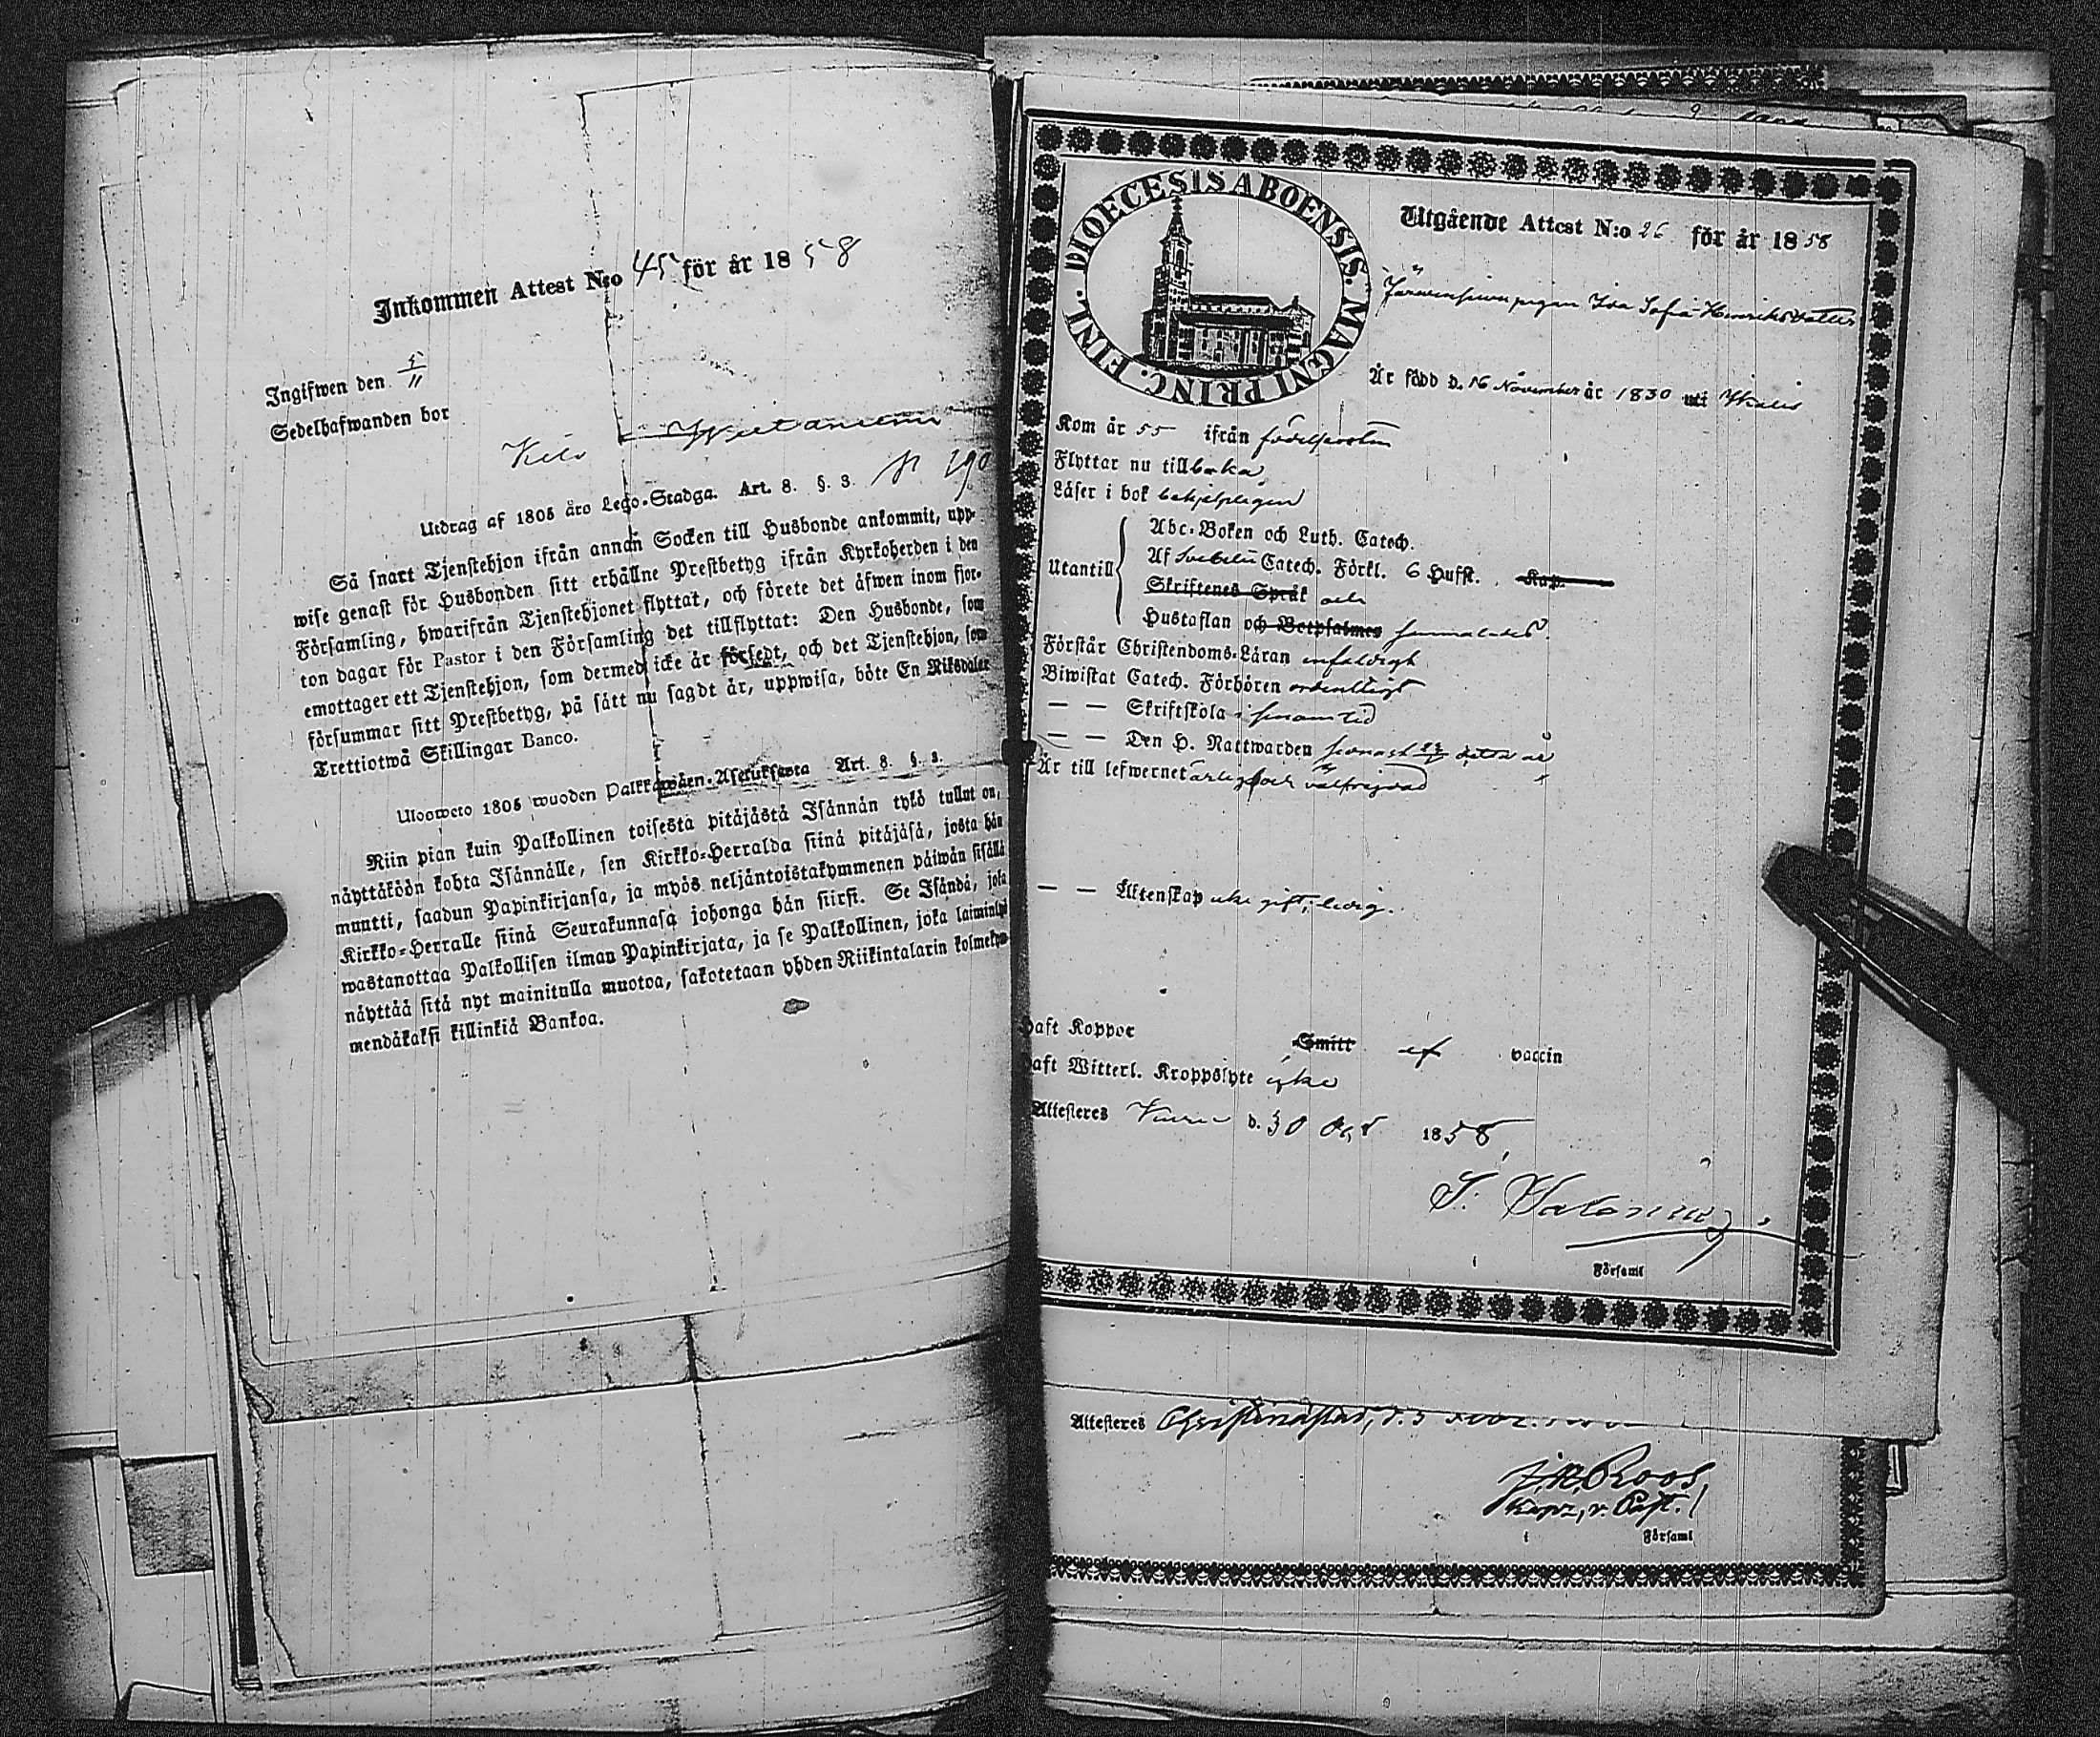 Inkommen Attest N:o 45 för år 1858
Ingifwen den 5/11
Sedelhafwanden bor
Utdrag af 1805 års Lego-Stadga. Art. 8. §. 3.
Så snart Tjenstehjon ifrån annan Socken till Husbonde ankommit, upp-
wise genast för Husbonden sitt erhållne Prestbetyg ifrån Kyrkoherden i den
Församling, hwarifrån Tjenstehjonet flyttat, och förete det äfwen inom fjor-
ton dagar för Pastor i den Församling det tillflyttat: Den Husbonde, som
emottager ett Tjenstehjon, som dermed icke är försedt, och det Tjenstehjon, som
försummar sitt Prestbetyg, på sätt nu sagdt är, uppwisa, böte En Riksdaler
Trettiotwå Skillingar Banco.
Uloosweto 1805 wuoden Palkkawäen-Asetuksesta Art. 8. §. 3.
Niin pian kuin Palkollinen toisesta pitäjästä Isännän tykö tullut on,
näyttäköön kohta Isännälle, sen Kirkko-Herralda siinä pitäjäsä, josta hän
muutti, saadun Papinkirjansa, ja myös neljäntoistakymmenen päiwän sisällä
Kirkko-Herralle siinä Seurakunnasa johonga hän siirsi. Se Isändä, joka
wastanottaa Palkollisen ilman Papinkirjata, ja se Palkollinen, joka laiminlyö
näyttää sitä nyt mainitulla muotoa, sakotetaan yhden Riikintalarin kolmekym-
mendäkaksi killinkiä Bankoa.
DIOECESIS ABOENSIS. MAGNI PRINC. FINL.
Utgående Attest N:o 26 för år 1858
pigan Ida Sofia Henriksdotter
Är född d. 16 November år 1830 uti Ikalis
Kom år 55 ifrån födelseorten
Flyttar nu tillbaka
Läser i bok behjelpligen
Utantill
Abc-Boken och Luth. Catech.
Af Svebelii Catech. Förkl. 6 Hufst. Kap.
Skriftenes Språk och
Hustaflan och Botpsalmes
Förstår Christendoms-Läran enfaldigt
Biwistat Catech. Förhören ordentligt
— — Skriftskola i sinom tid
— — Den H. Nattwarden senast detta år
Är till lefwernet ärlig och välfrejdad
— — Äktenskap icke gift, ledig.
Haft Koppor Smitt ef vaccin
Haft Witterl. Kroppslyte icke
Attesteres d. 30 Oct 1858
i Församl
Attesteres Christinestad, d. 3
Roos
i Församl